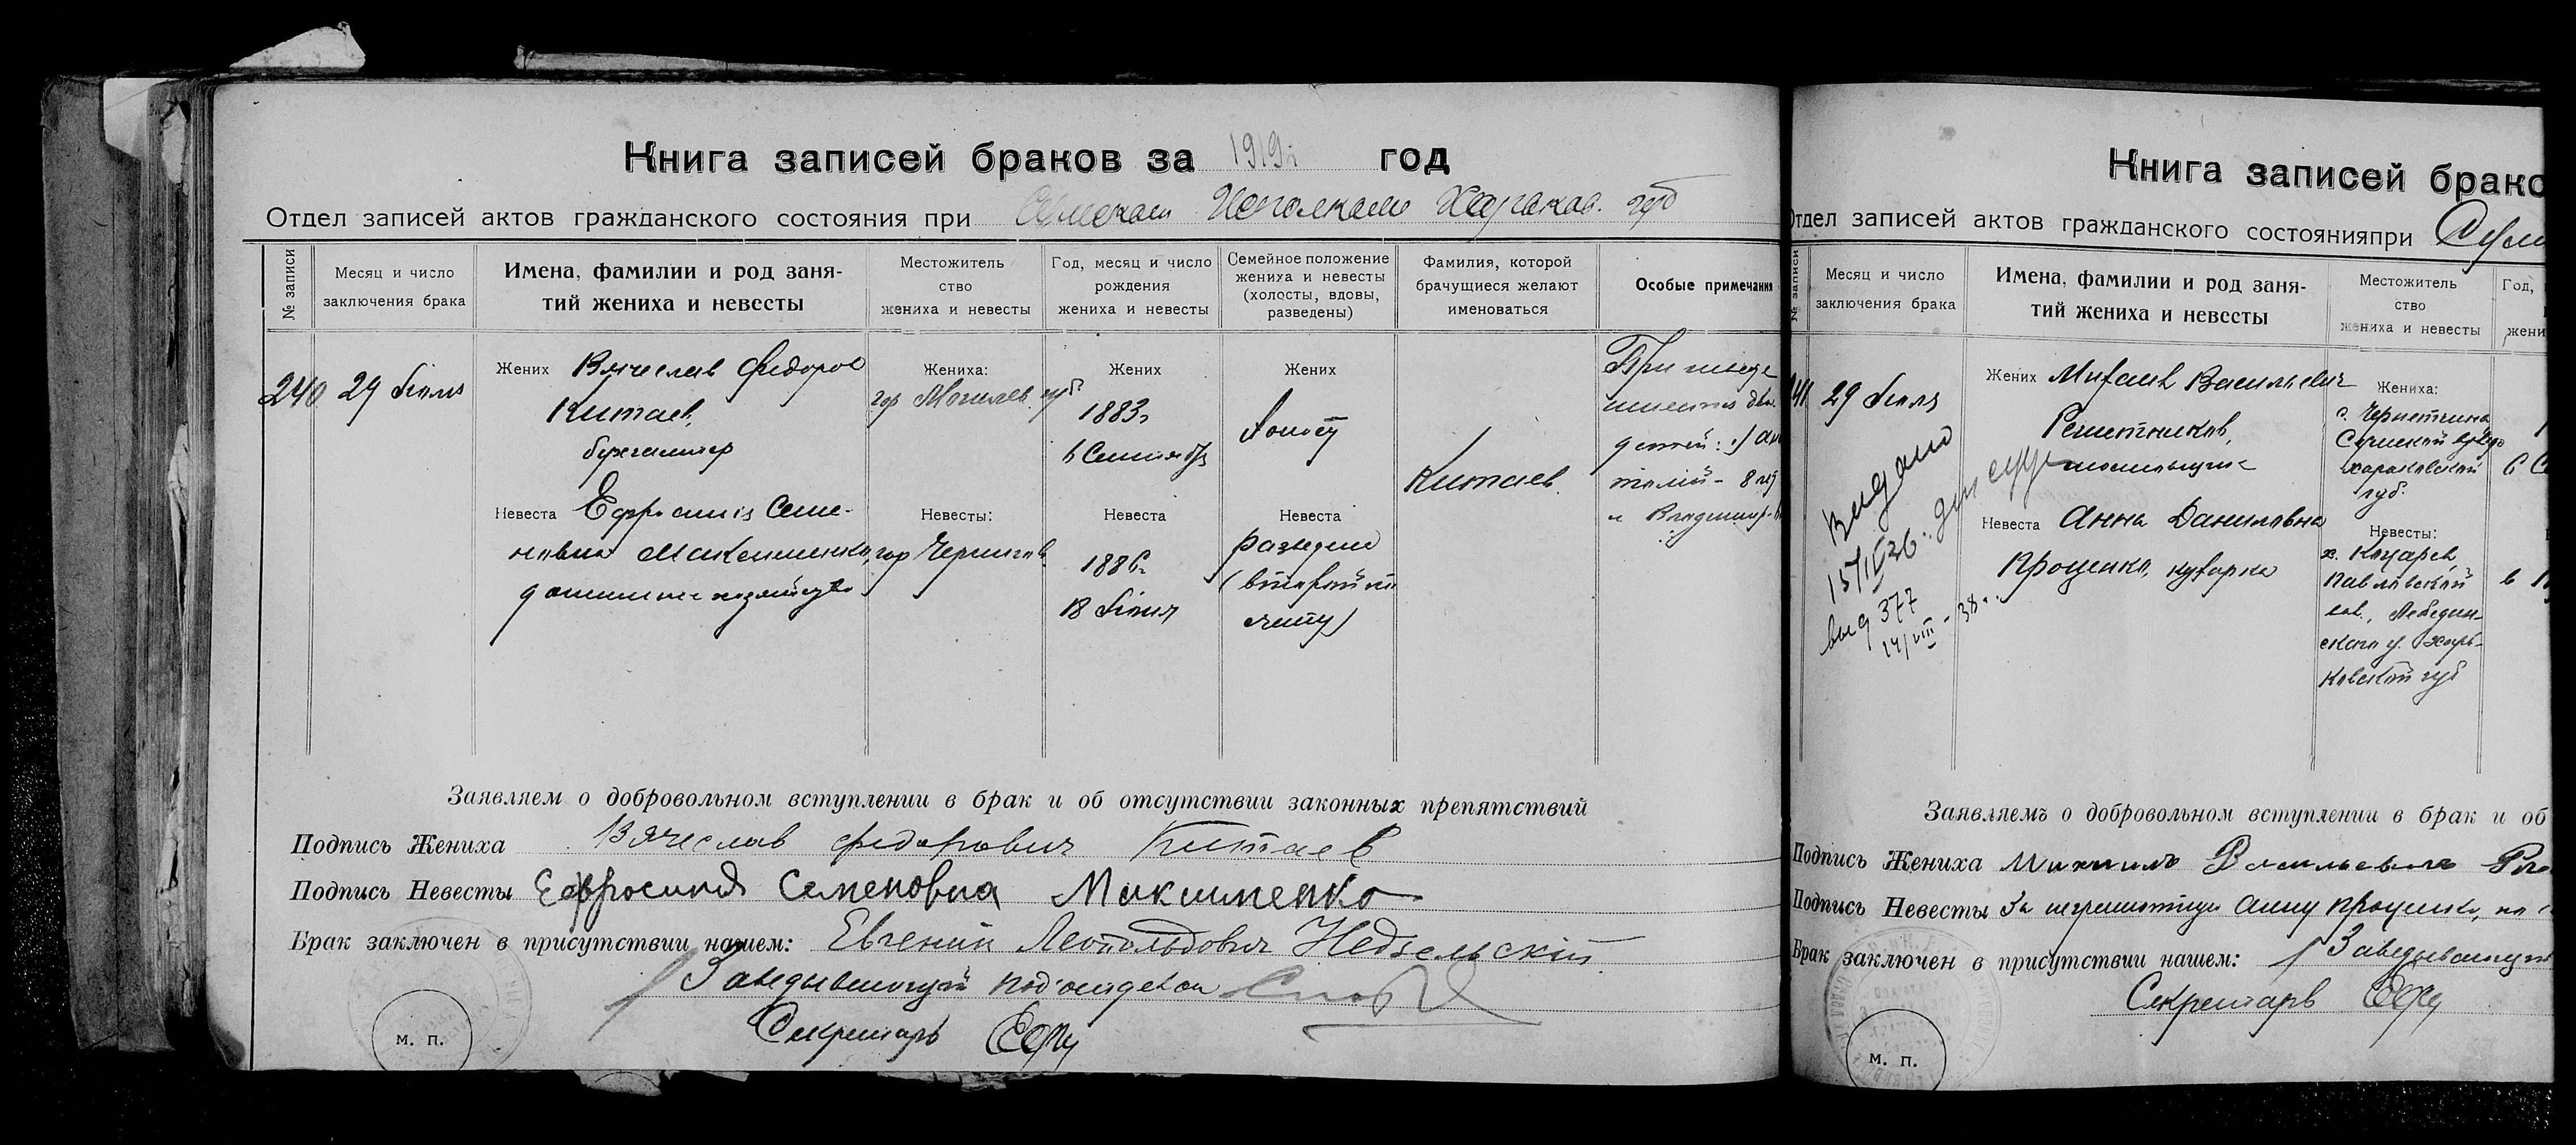 Книга записей браков за 1919 г год
Отдел записей актов гражданского состояния при Сумском Исполкоме Харьков. губ
№ записи
Месяц и число
заключения брака
Имена, фамилии и род заня-
тий жениха и невесты
Местожитель
ство
жениха и невесты
Год, месяц и число
рождения
жениха и невесты
Семейное положение
жениха и невесты
(холосты, вдовы,
разведены)
Фамилия, которой
брачущиеся желают
именоваться
Особые примечания
240
29 Июля
Жених Вячеслав Федоров
Китаев,
бухгалтер
Невеста Ефросиния Семе-
новна Максименко,
домашнее хозяйство
Жениха:
гор Могилев губ.
Невесты:
гор Чернигов
Жених
1883г
6 Сентября
Невеста
1886г
18 Июля
Жених
холост
Невеста
разведена
(второй
Китаев
При
двое
детей: 1) Ана
толий - 8 лет
и Владимир
Заявляем о добровольном вступлении в брак и об отсутствии законных препятствий
Подпись Жениха Вячеслав Федорович Китаев
Подпись Невесты Ефросиния Семеновна Максименко
Брак заключен в присутствии нашем: Евгений Леопольдович Недзельскій
Заведывающий под'отделом
Секретарь
м. п.
Книга записей брако
Отдел записей актов гражданского состоянияпри Сум
№ записи
Месяц и число
заключения брака
Имена, фамилии и род заня-
тий жениха и невесты
Местожитель
ство
жениха и невесты
Год,
жени
41
29 Июля
Видано
15/IV 36 для
выд 377
14/VIII - 38 г.
Жених Михаил Васильевич
Решетников,
Невеста Анна Даниловна
Проценко, кухарка
Жениха:
с. Чернетчина
Сумской
Харьковской
губ.
Невесты:
х.
Павловской
вол., Лебедин-
ского у. Харь-
ковской губ
Заявляемъ о добровольном вступлении в брак и об
Подпись Жениха Михаилъ Васильевичъ
Подпись Невесты За неграмотную Анну Проценко, по
Брак заключен в присутствии нашем: Заведывающий
Секретарь
м. п.